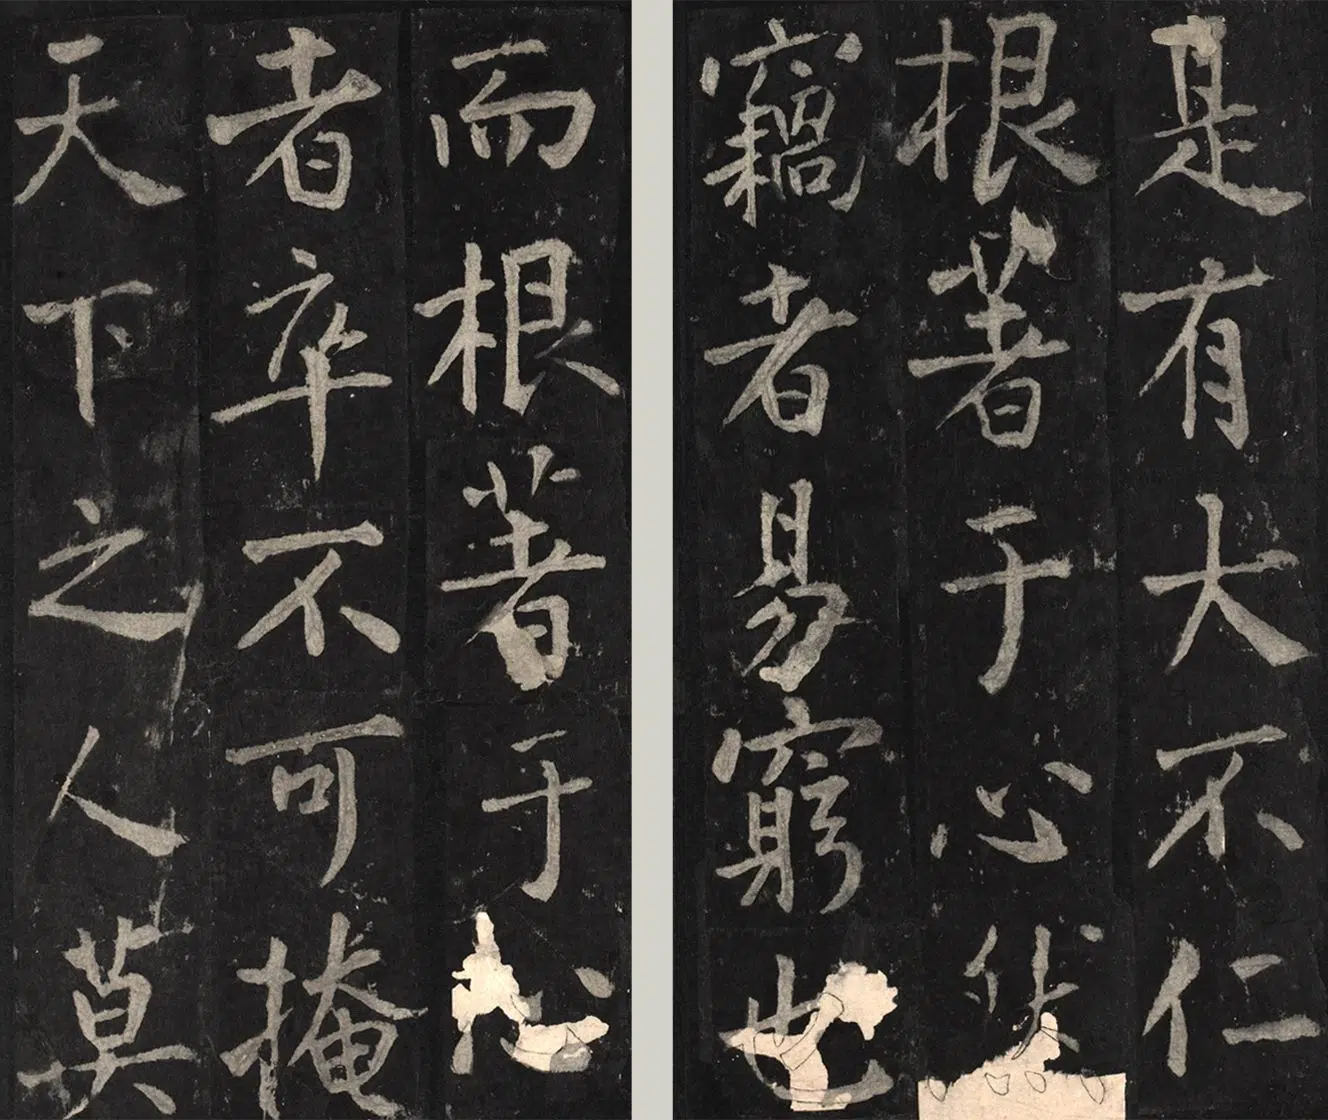 是有大不仁
根著于心然
竊者易窮也
而根著于心
者卒不可掩
天下之人莫